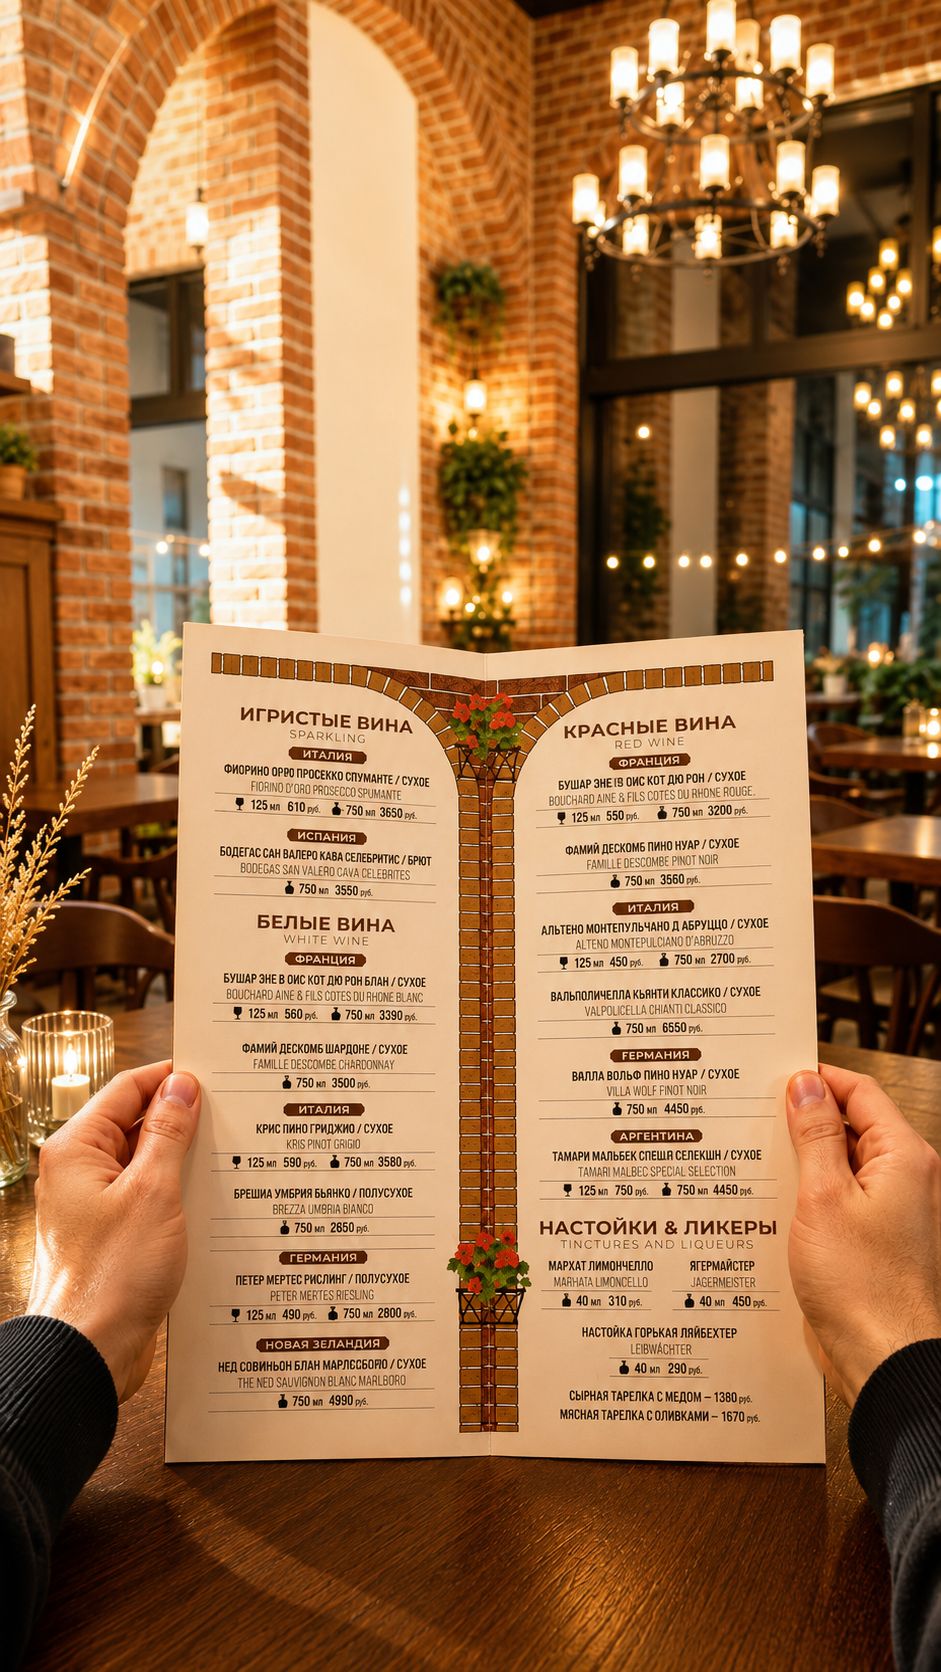 ИГРИСТЫЕ ВИНА
SPARKLING
ИТАЛИЯ
ФИОРИНО ОРРО ПРОСЕККО СПУМАНТЕ / СУХОЕ
FIORINO D'ORO PROSECCO SPUMANTE
125 мл 610 руб. 750 мл 3650 руб.
ИСПАНИЯ
БОДЕГАС САН ВАЛЕРО КАВА СЕЛЕБРИТИС / БРЮТ
BODEGAS SAN VALERO CAVA CELEBRITES
750 мл 3550 руб.
БЕЛЫЕ ВИНА
WHITE WINE
ФРАНЦИЯ
БУШАР ЭНЕ В ОИС КОТ ДЮ РОН БЛАН / СУХОЕ
BOUCHARD AINE & FILS COTES DU RHONE BLANC
125 мл 560 руб. 750 мл 3390 руб.
ФАМИЙ ДЕСКОМБ ШАРДОНЕ / СУХОЕ
FAMILLE DESCOMBE CHARDONNAY
750 мл 3500 руб.
ИТАЛИЯ
КРИС ПИНО ГРИДЖИО / СУХОЕ
KRIS PINOT GRIGIO
125 мл 590 руб. 750 мл 3580 руб.
БРЕШИА УМБРИЯ БЬЯНКО / ПОЛУСУХОЕ
BREZZA UMBRIA BIANCO
750 мл 2650 руб.
ГЕРМАНИЯ
ПЕТЕР МЕРТЕС РИСЛИНГ / ПОЛУСУХОЕ
PETER MERTES RIESLING
125 мл 490 руб. 750 мл 2800 руб.
НОВАЯ ЗЕЛАНДИЯ
НЕД СОВИНЬОН БЛАН МАРЛЕСБОРЮ / СУХОЕ
THE NED SAUVIGNON BLANC MARLBORO
750 мл 4990 руб.
КРАСНЫЕ ВИНА
RED WINE
ФРАНЦИЯ
БУШАР ЭНЕ В ОИС КОТ ДЮ РОН / СУХОЕ
BOUCHARD AINE & FILS COTES DU RHONE ROUGE.
125 мл 550 руб. 750 мл 3200 руб.
ФАМИЙ ДЕСКОМБ ПИНО НУАР / СУХОЕ
FAMILLE DESCOMBE PINOT NOIR
750 мл 3560 руб.
ИТАЛИЯ
АЛЬТЕНО МОНТЕПУЛЬЧАНО Д АБРУЦЦО / СУХОЕ
ALTENO MONTEPULCIANO D'ABRUZZO
125 мл 450 руб. 750 мл 2700 руб.
ВАЛЬПОЛИЧЕЛЛА КЬЯНТИ КЛАССИКО / СУХОЕ
VALPOLICELLA CHIANTI CLASSICO
750 мл 6550 руб.
ГЕРМАНИЯ
ВАЛЛА ВОЛЬФ ПИНО НУАР / СУХОЕ
VILLA WOLF PINOT NOIR
750 мл 4450 руб.
АРГЕНТИНА
ТАМАРИ МАЛЬБЕК СПЕШЛ СЕЛЕКШН / СУХОЕ
TAMARI MALBEC SPECIAL SELECTION
125 мл 750 руб. 750 мл 4450 руб.
НАСТОЙКИ & ЛИКЕРЫ
TINCTURES AND LIQUEURS
МАРХАТ ЛИМОНЧЕЛЛО ЯГЕРМАЙСТЕР
MARHATA LIMONCELLO JAGERMEISTER
40 мл 310 руб. 40 мл 450 руб.
НАСТОЙКА ГОРЬКАЯ ЛЯЙБЕХТЕР
LEIBWÄCHTER
40 мл 290 руб.
СЫРНАЯ ТАРЕЛКА С МЕДОМ – 1380 руб.
МЯСНАЯ ТАРЕЛКА С ОЛИВКАМИ – 1670 руб.